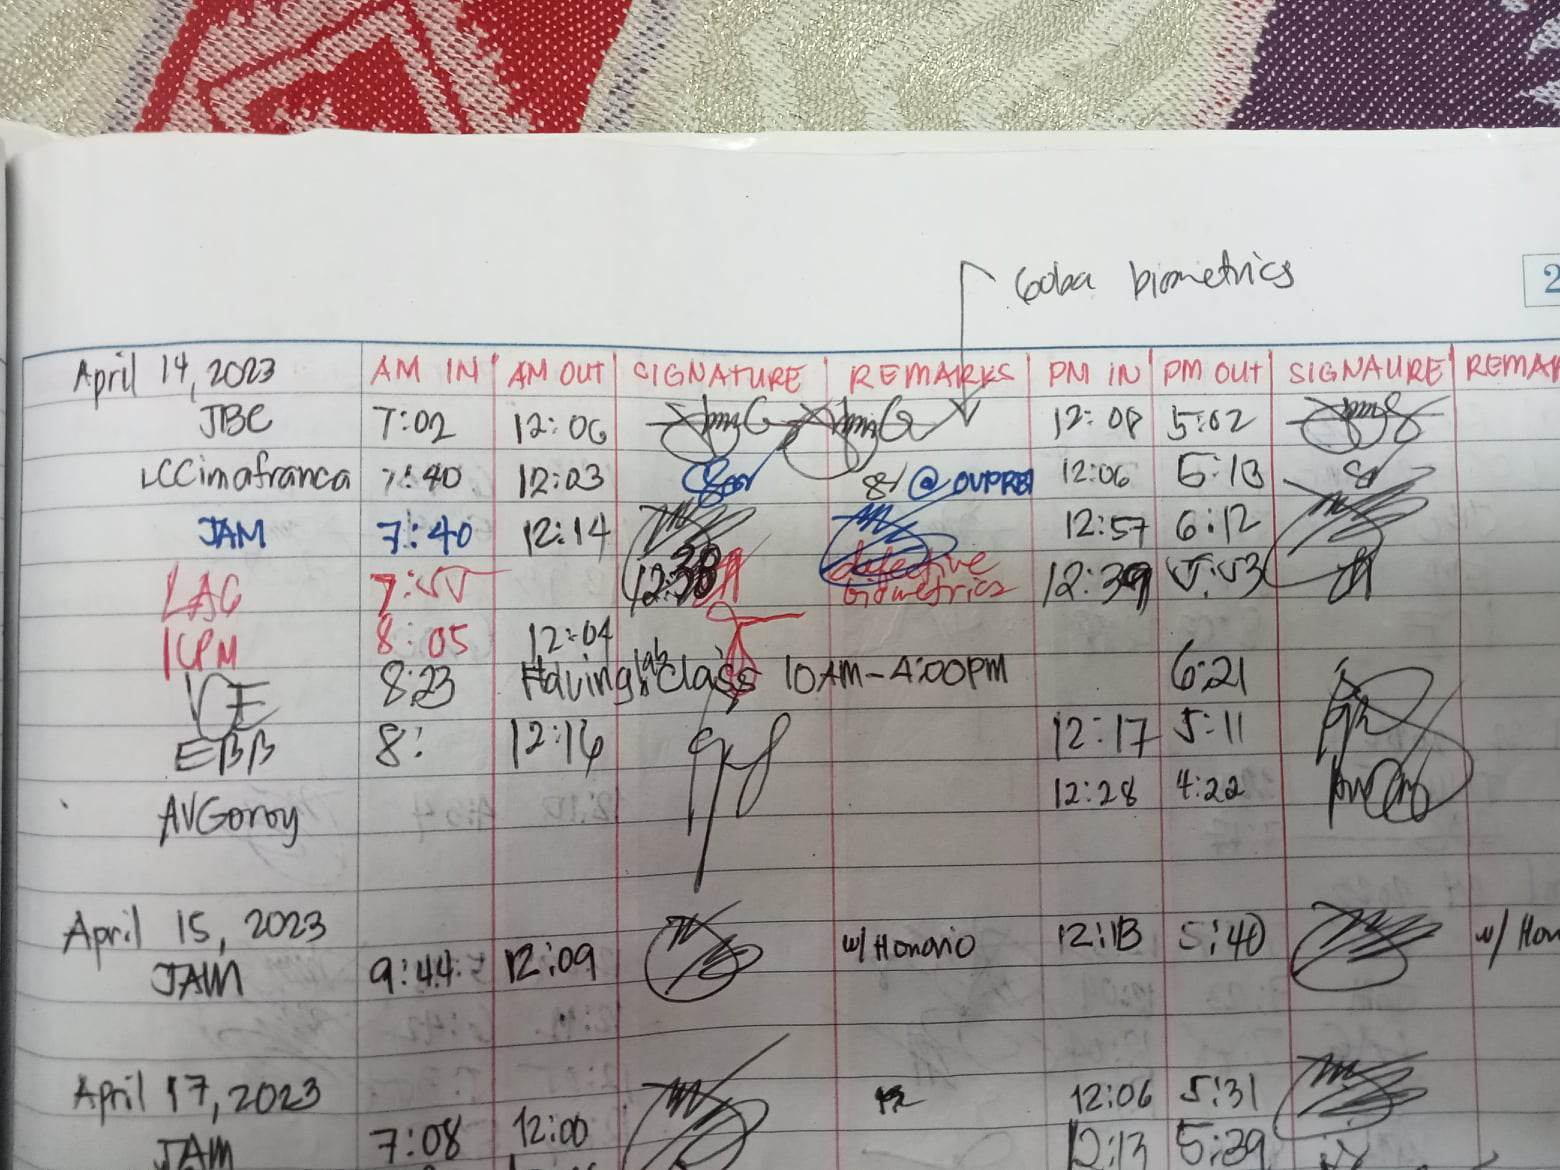 Guba biometrics
2
April 14, 2023 AM IN AM OUT SIGNATURE REMARKS PM IN PM OUT SIGNAURE REMAR
JBC 7:02 12:06 12:08 5:02
LCCimafranca 7:40 12:03 @ OVPREI 12:06 5:13
JAM 7:40 12:14 12:57 6:12
LAG 7:55 12:38 defective biometrics 12:39 5:53
ICPM 8:05 12:04
8:23 Having lab class 10AM-4:00PM 6:21
EBB 8: 12:16 12:17 5:11
AVGoroy 12:28 4:22
April 15, 2023
JAM 9:44 12:09 w/ Honorio 12:13 5:40 w/ Hon
April 17, 2023 12:06 5:31
JAM 7:08 12:00 12:13 5:39